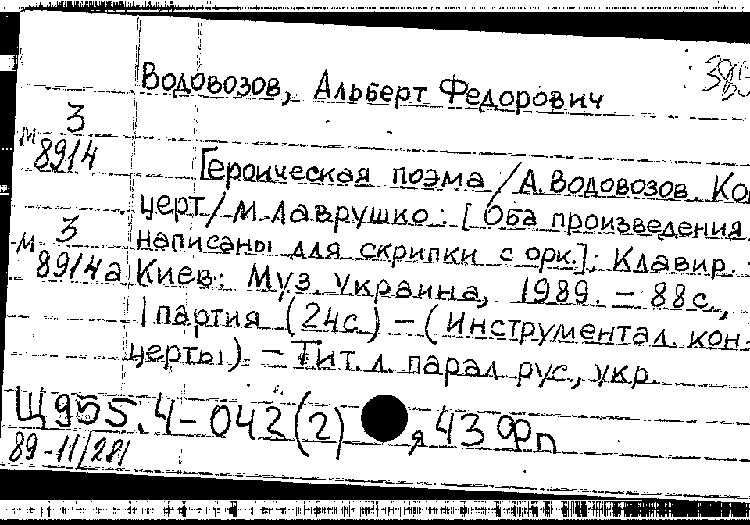 Водовозов, Альберт Федорович
м 3
8914
Героическая поэма / А. Водовозов. Кон
церт / М. Лаврушко : [Оба произведения
м 3 написаны для скрипки с орк.]; Клавир. -
8914а Киев: Муз. Украина, 1989. – 88 с.,
1 партия (24 с.) – (Инструментал. кон-
церты). – Тит. л. парал. рус., укр.
Щ955.4-042(2) , я43 Фп
89-11/281